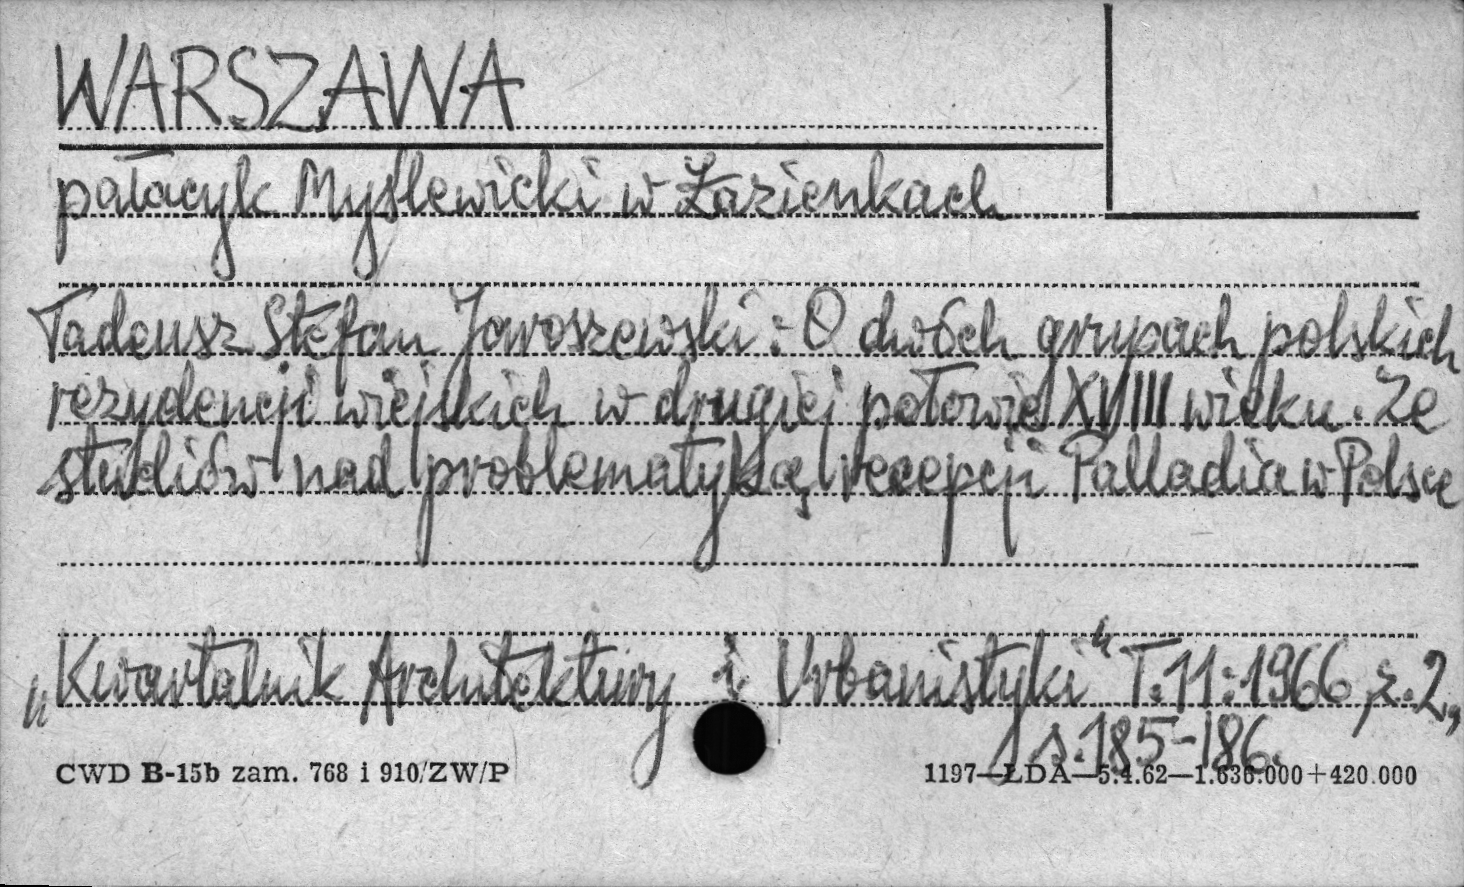 WARSZAWA
pałacyk Myślewicki w Łazienkach
Tadeusz Stefan Jaroszewski: O dwóch grupach polskich
rezydencji wiejskich w drugiej połowie XVIII wieku. Ze
studiów nad problematyką recepcji Palladia w Polsce
„Kwartalnik Architektury i Urbanistyki" T.11:1966, z.2,
s.185-186.
CWD B-15b zam. 768 i 910/ZW/P
1197—ŁDA—5.4.62—1.636.000+420.000